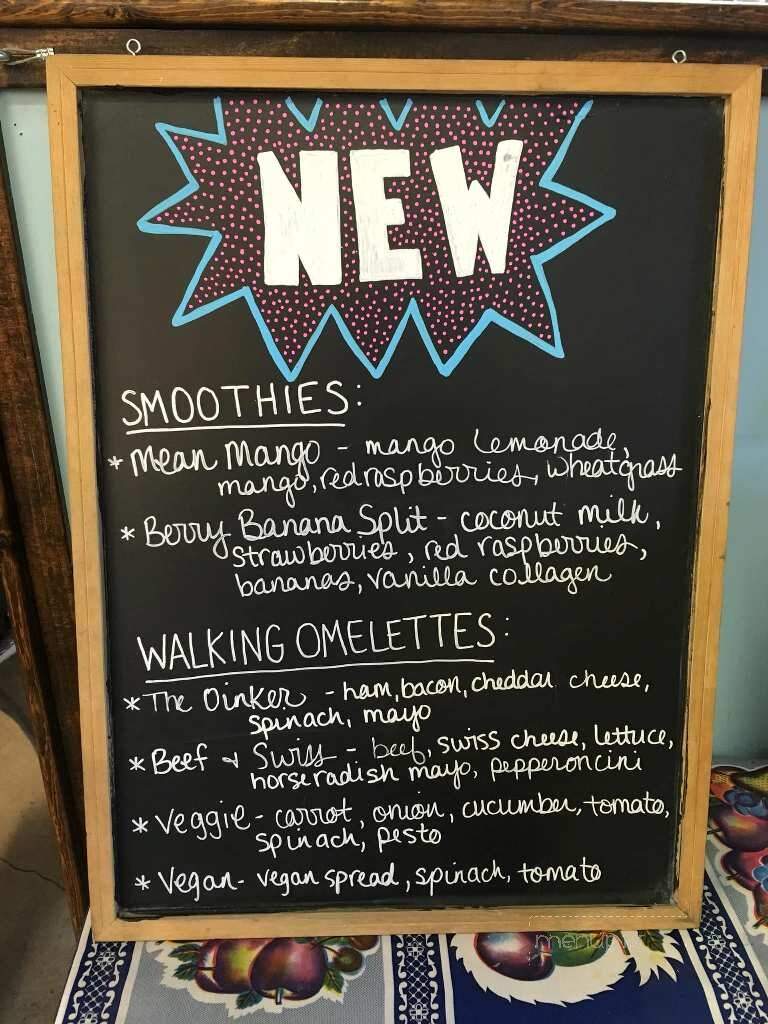 NEW
SMOOTHIES:
* Mean Mango - mango lemonade,
mango, red raspberries, wheatgrass
* Berry Banana Split - coconut milk,
strawberries, red raspberries,
bananas, vanilla collagen
WALKING OMELETTES:
* The Oinker - ham, bacon, cheddar cheese,
spinach, mayo
* Beef & Swiss - beef, swiss cheese, lettuce,
horseradish mayo, pepperoncini
* Veggie - carrot, onion, cucumber, tomato,
spinach, pesto
* Vegan - vegan spread, spinach, tomato